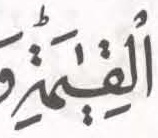 الْقِيٰمَةِؕ وَ